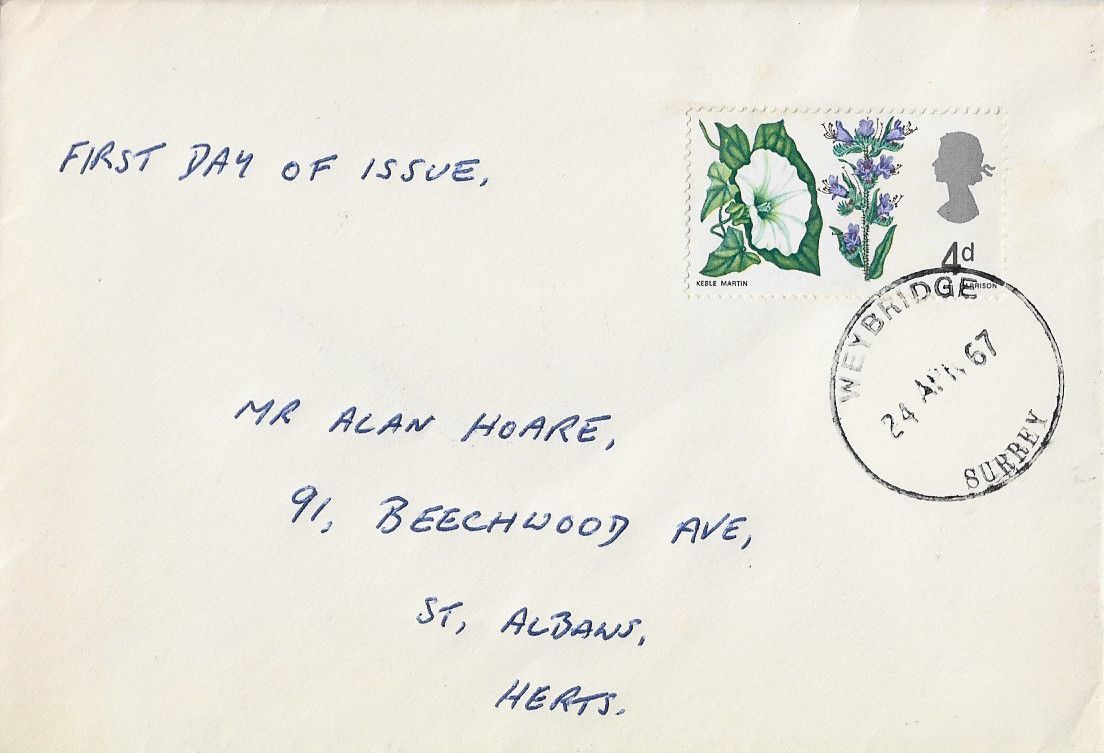 FIRST DAY OF ISSUE,
KEBLE MARTIN
4d
WEYBRIDGE
24 APR 67
SURREY
MR ALAN HOARE,
91, BEECHWOOD AVE,
ST, ALBANS,
HERTS.